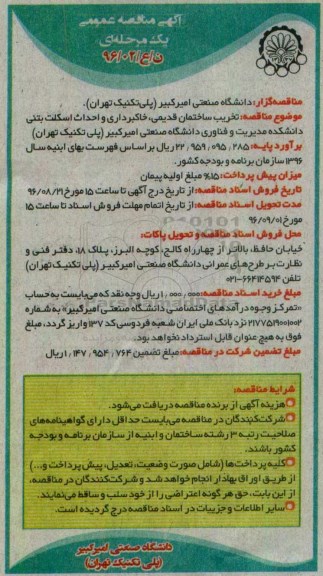 آگهی مناقصه عمومی
یک مرحله‌ای
ن/ع/۹۶/۰۲
مناقصه‌گزار: دانشگاه صنعتی امیرکبیر (پلی‌تکنیک تهران).
موضوع مناقصه: تخریب ساختمان قدیمی، خاکبرداری و احداث اسکلت بتنی
دانشکده مدیریت و فناوری دانشگاه صنعتی امیرکبیر (پلی تکنیک تهران)
برآورد پایه: ۲۲/۹۵۹/۰۹۵/۲۸۵ ریال بر اساس فهرست بهای ابنیه سال
۱۳۹۶ سازمان برنامه و بودجه کشور.
میزان پیش پرداخت: ۱۵% مبلغ اولیه پیمان
تاریخ فروش اسناد مناقصه: از تاریخ درج آگهی تا ساعت ۱۵ مورخ ۹۶/۰۸/۲۱
مدت تحویل اسناد مناقصه: از تاریخ اتمام مهلت فروش اسناد تا ساعت ۱۵
مورخ ۹۶/۰۹/۰۱
محل فروش اسناد مناقصه و تحویل پاکات:
خیابان حافظ، بالاتر از چهارراه کالج، کوچه البرز، پلاک ۱۸، دفتر فنی و
نظارت بر طرح‌های عمرانی دانشگاه صنعتی امیرکبیر (پلی تکنیک تهران)
تلفن ۶۶۴۱۴۵۹۴-۰۲۱
مبلغ خرید اسناد مناقصه: ۱/۰۰۰/۰۰۰ ریال وجه نقد که می‌بایست به حساب
«تمرکز وجوه درآمدهای اختصاصی دانشگاه صنعتی امیرکبیر» به شماره
۲۱۷۷۵۱۹۰۰۱۰۰۲ نزد بانک ملی ایران شعبه فردوسی کد ۱۳۷ واریز گردد، مبلغ
فوق به هیچ عنوان قابل استرداد نخواهد بود.
مبلغ تضمین شرکت در مناقصه: مبلغ تضمین ۱/۱۴۷/۹۵۴/۷۶۴ ریال
شرایط مناقصه:
هزینه آگهی از برنده مناقصه دریافت می‌شود.
شرکت‌کنندگان در مناقصه می‌بایست حداقل دارای گواهینامه‌های
صلاحیت رتبه ۳ رشته ساختمان و ابنیه از سازمان برنامه و بودجه
کشور باشند.
کلیه پرداخت‌ها (شامل صورت وضعیت، تعدیل، پیش پرداخت و...)
از طریق اوراق بهادار انجام خواهد شد و شرکت‌کنندگان در مناقصه،
از این بابت، حق هرگونه اعتراضی را از خود سلب و ساقط می‌نمایند.
سایر اطلاعات و جزییات در اسناد مناقصه درج گردیده است.
دانشگاه صنعتی امیرکبیر
(پلی تکنیک تهران)